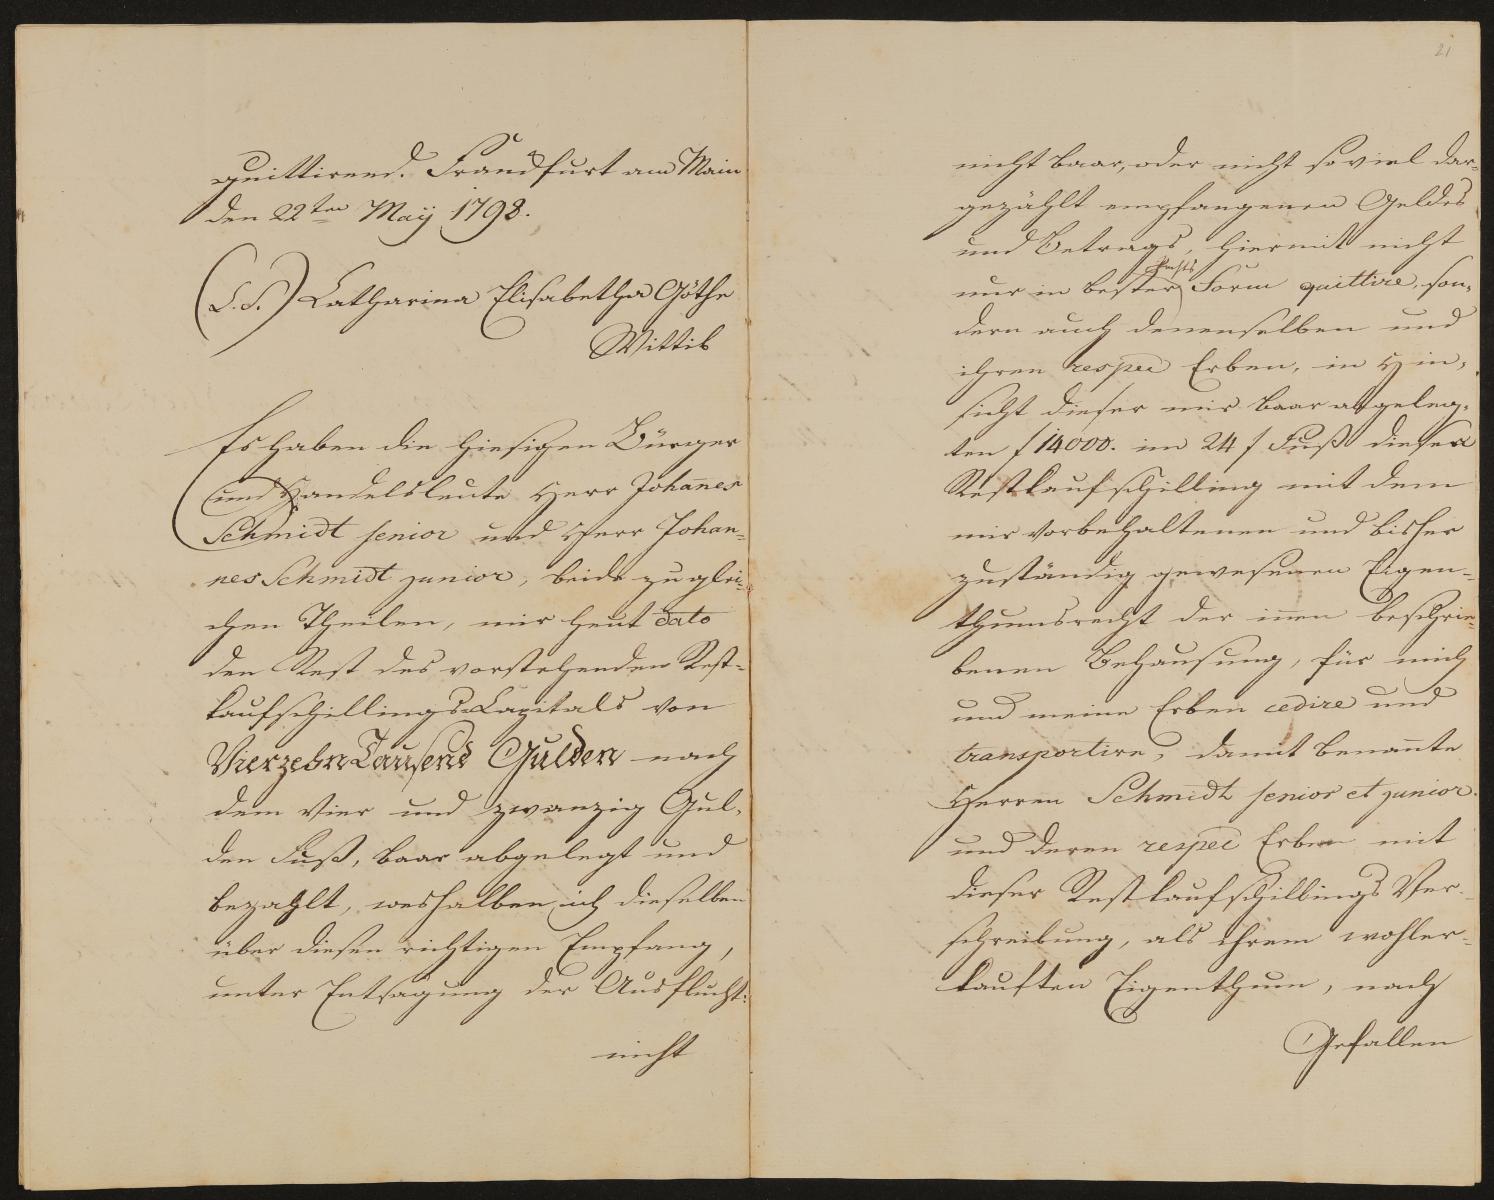 quittirend. Frankfurt am Main
den 22ten Maÿ 1798.
(L.S.) Catharina Elisabetha Göthe
Wittib
Es haben die hiesigen Bürger
und Handelsleute Herr Johannes
Schmidt senior und Herr Johan-
nes Schmidt junior, beide zu glei-
chen Theilen, mir heut dato
den Rest des vorstehenden Rest-
kaufschillings-Capitals von
Vierzehn Tausend Gulden nach
dem Vier und zwanzig Gul-
den Fuß, baar abgelegt und
bezahlt, weshalben ich dieselben
über diesen richtigen Empfang,
unter Entsagung der Ausflucht:
nicht
21
nicht baar, oder nicht soviel dar-
gezählt empfangenen Geldes
und Betrags, hiermit nicht
nur in bester Rechts Form quittire, son-
dern auch denenselben und
ihren respec Erben, in Hin-
sicht dieser mir baar abgeleg-
ten f 14000. im 24 f Fuß dieser
Restkaufschilling mit dem
mir vorbehaltenen und bisher
zuständig gewesenen Eigen-
thumsrecht der inen beschrie-
benen Behausung, für mich
und meine Erben cedire und
transportire, damit benannte
Herren Schmidt senior et junior.
und deren respec Erben mit
dieser Restkaufschillings Ver-
schreibung, als ihrem wohler-
kauften Eigenthum, nach
Gefallen